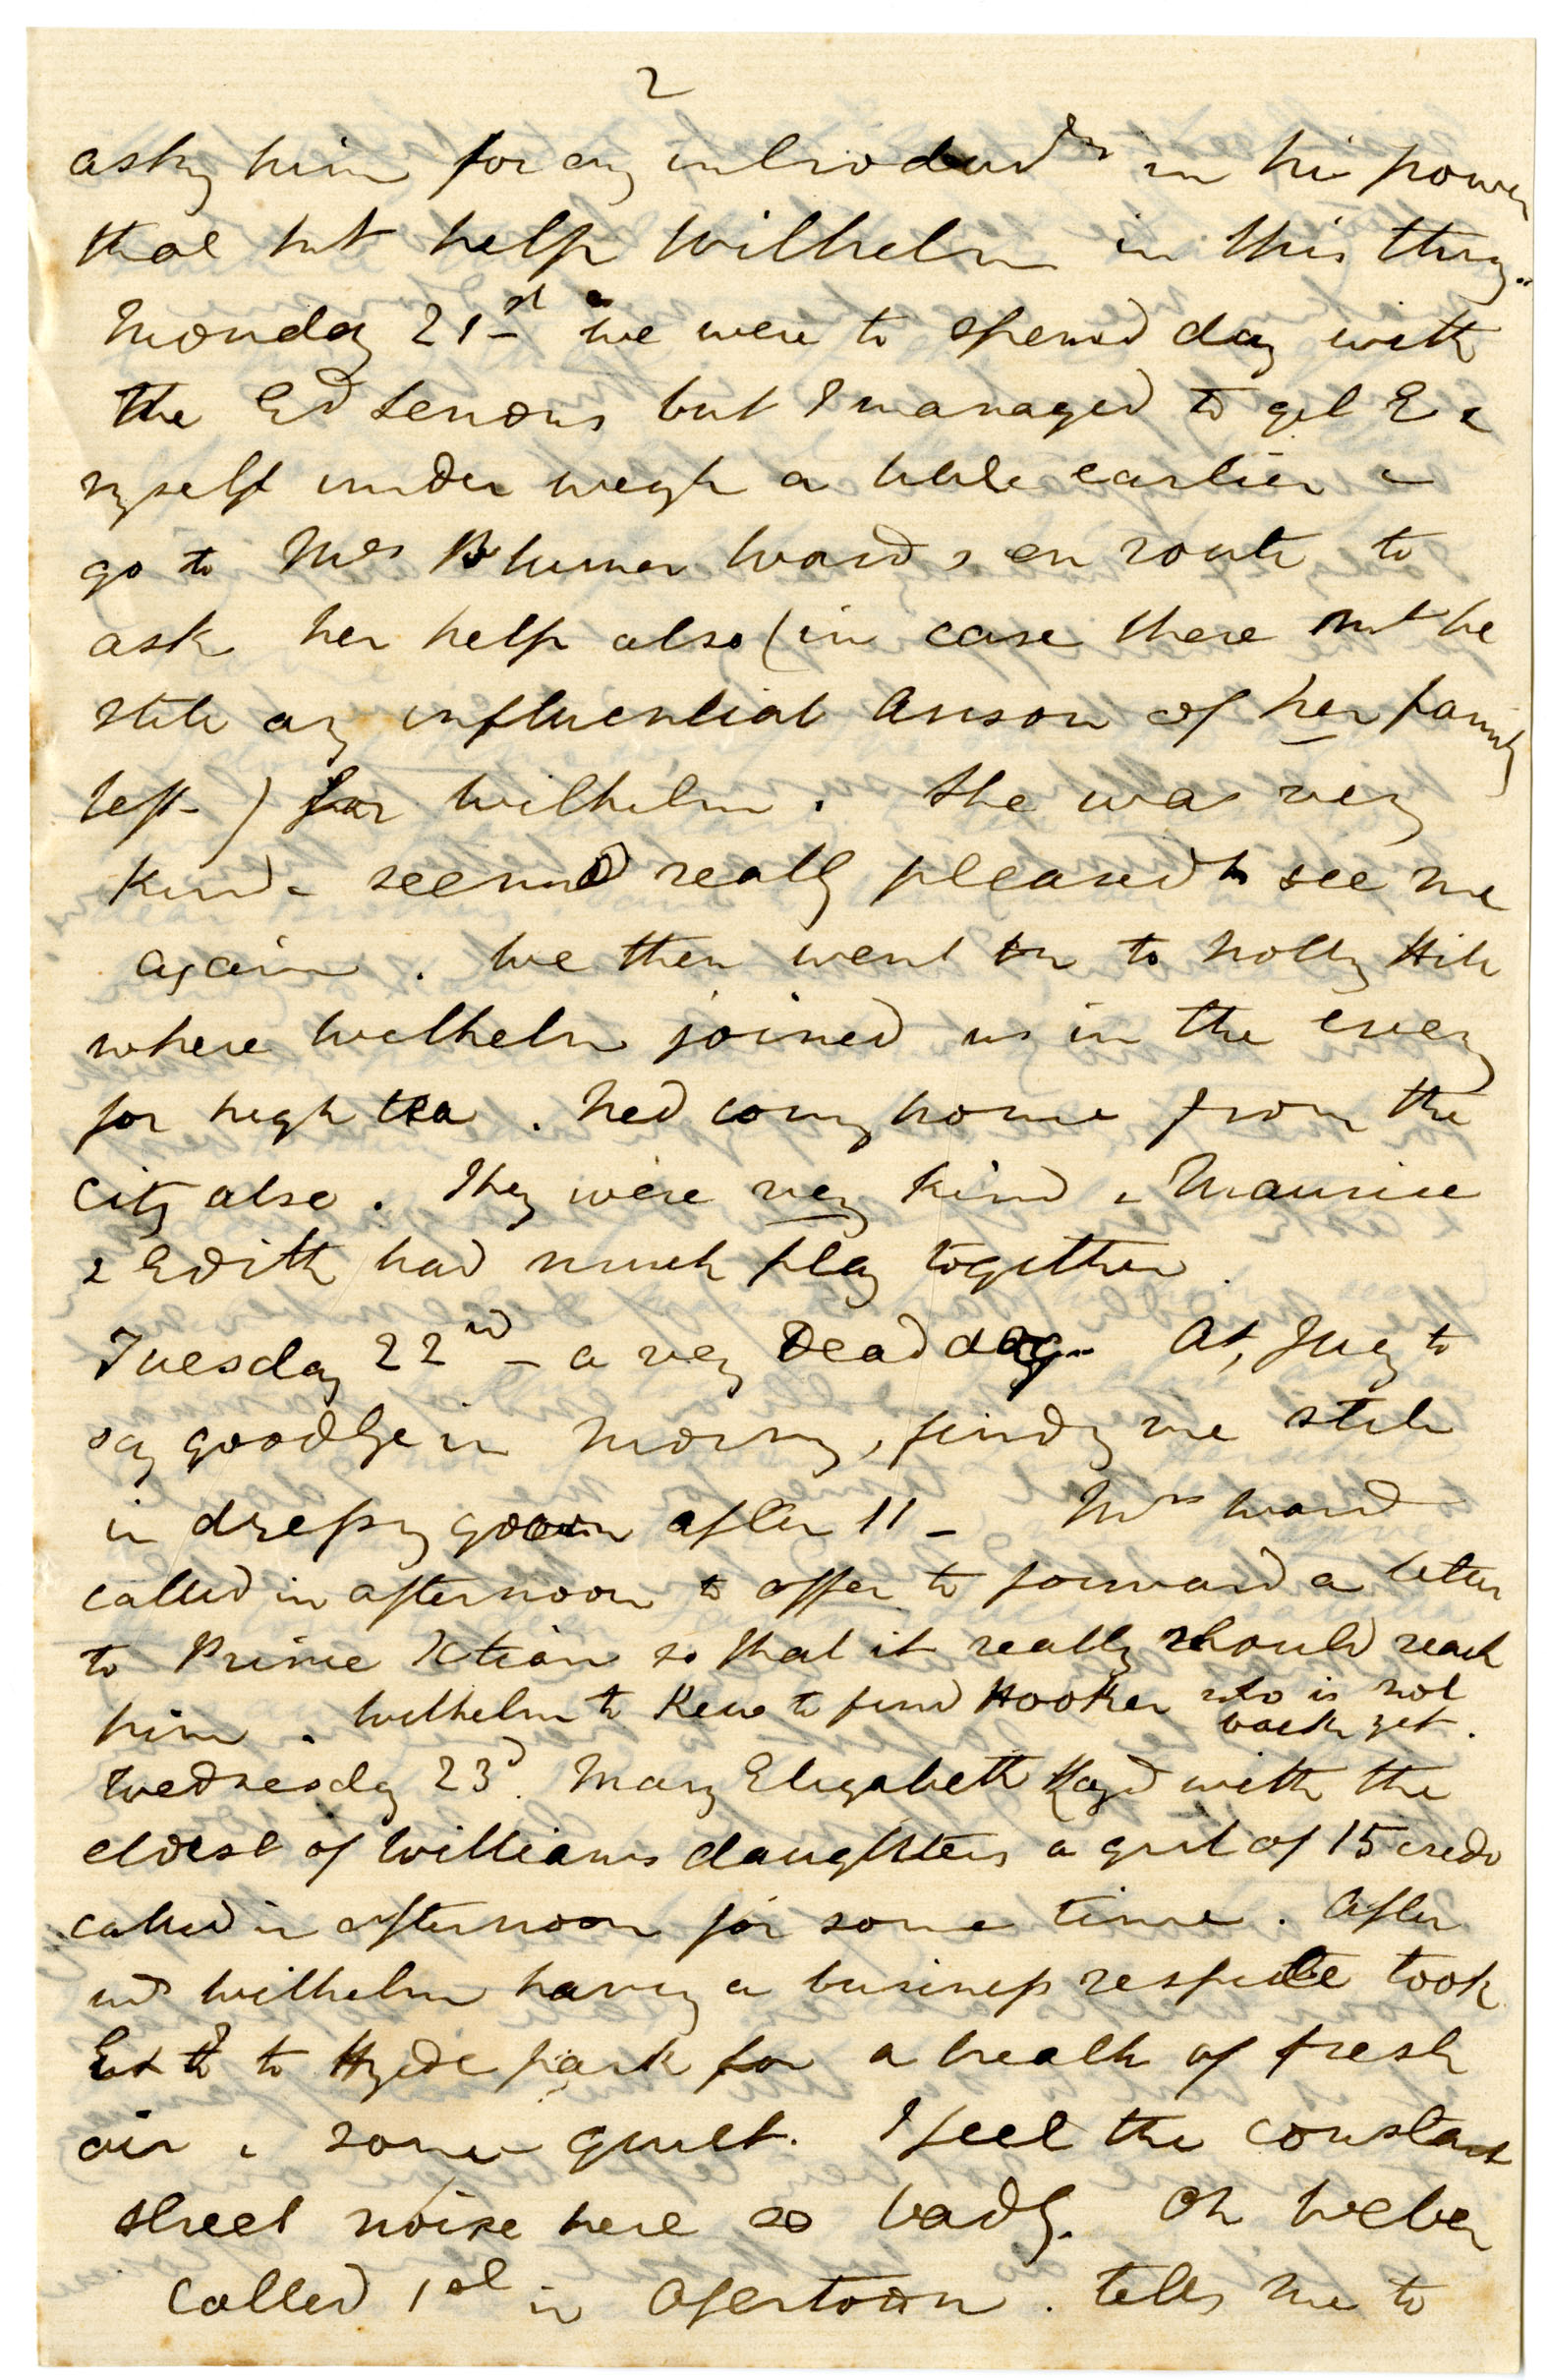 2
asky him for any introduct^ns in his power
that mt help Wilhelm in this thing.
Monday 21st we were to spend day with
the Ed Lennons but I managed to get E &
myself under weigh a little earlier &
go to Mrs Plumer Wards en route to
ask her help also (in case there mt be
still any influential Anson of her family
left) for Wilhelm. She was very
kind & seemed really pleased to see me
again. We then went on to Holly Hill
where Wilhelm joined us in the eveng
for high tea. Ned comg home from the
City also. They were very kind & Maurice
& Edith had much play together.
Tuesday 22nd - a very Dead day - At. Jucy to
say goodbye in mornng, findg me still
in dressg gown after 11 - Mrs Ward
called in afternoon to offer to forward a letter
to Prince Xtian so that it really should reach
him. Wilhelm to Kew to find Hooker who is not
back yet.
Wednesday 23d. Mary Elizabeth with the
eldest of Williams daughters a girl of 15
called in afternoon for some time. After
wds Wilhelm having a business respite took
E & to Hyde park for a breath of fresh
air & some quiet. I feel the constant
street noise here so badly. Oh Weber
called 1st in Afertoon. tells me to